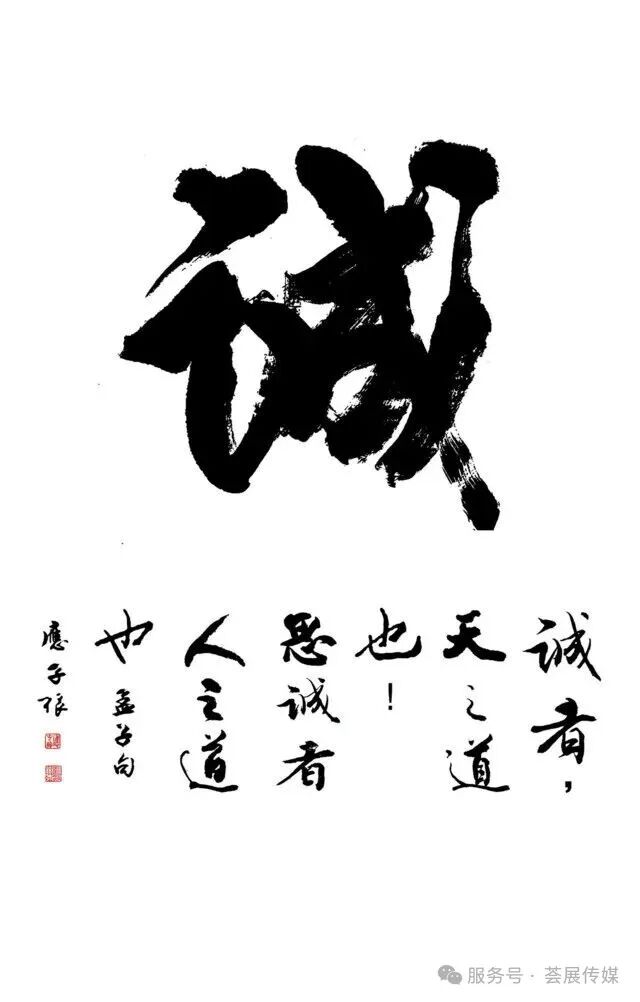 誠
誠者，
天之道
也！
思誠者
人之道
也 孟子句
應
服务号 · 荟展传媒